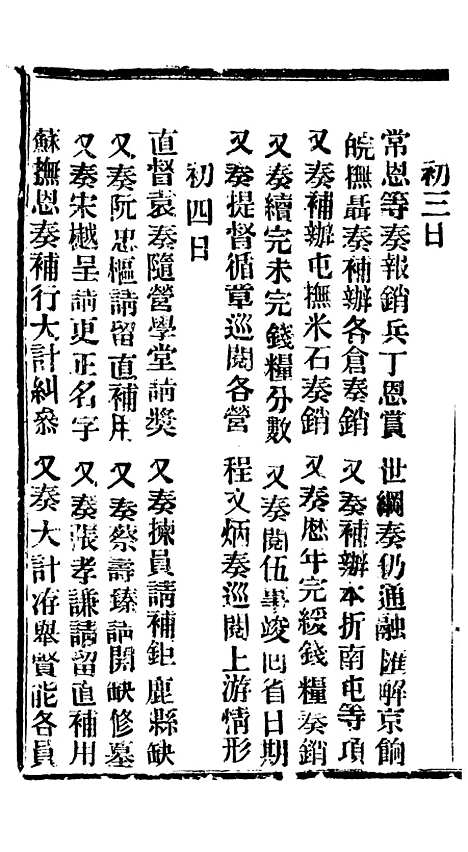 初三日
常恩等奏報銷兵丁恩賞　世綱奏仍通融匯解京餉
皖撫聶奏補辦各倉奏銷　又奏補辦本折南屯等項
又奏補辦屯撫米石奏銷　又奏歷年完緩錢糧奏銷
又奏續完未完錢糧分數　又奏閱伍事竣回省日期
又奏提督循章巡閱各營　程文炳奏巡閱上游情形
初四日
直督袁奏隨營學堂請獎　又奏揀員請補鉅鹿縣缺
又奏阮忠樞請留直補用　又奏蔡壽臻請開缺修墓
又奏宋樾呈請更正名字　又奏張孝謙請留直補用
蘇撫恩奏補行大計糾參　又奏大計洊舉賢能各員